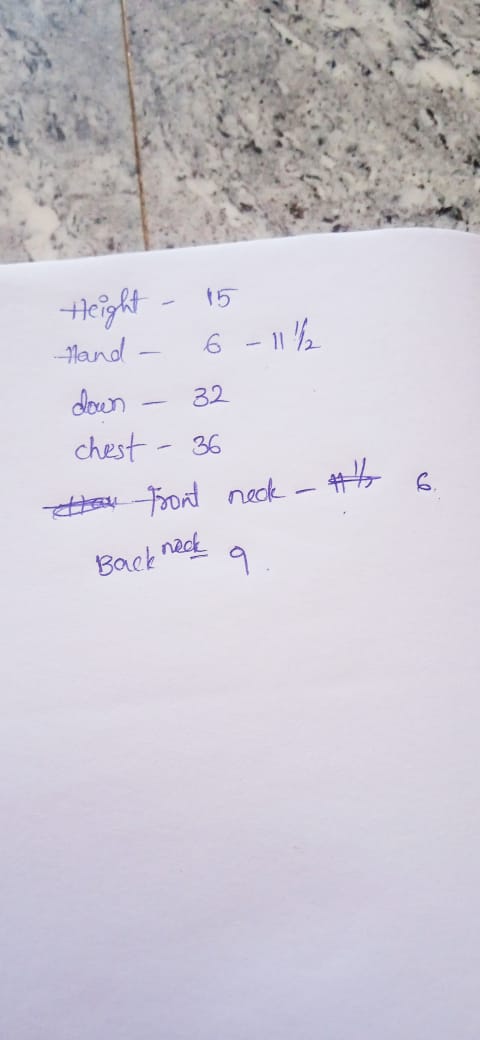 Height - 15
Hand - 6 - 11 1/2
down - 32
chest - 36
Front neck - 6.
Back neck 9.